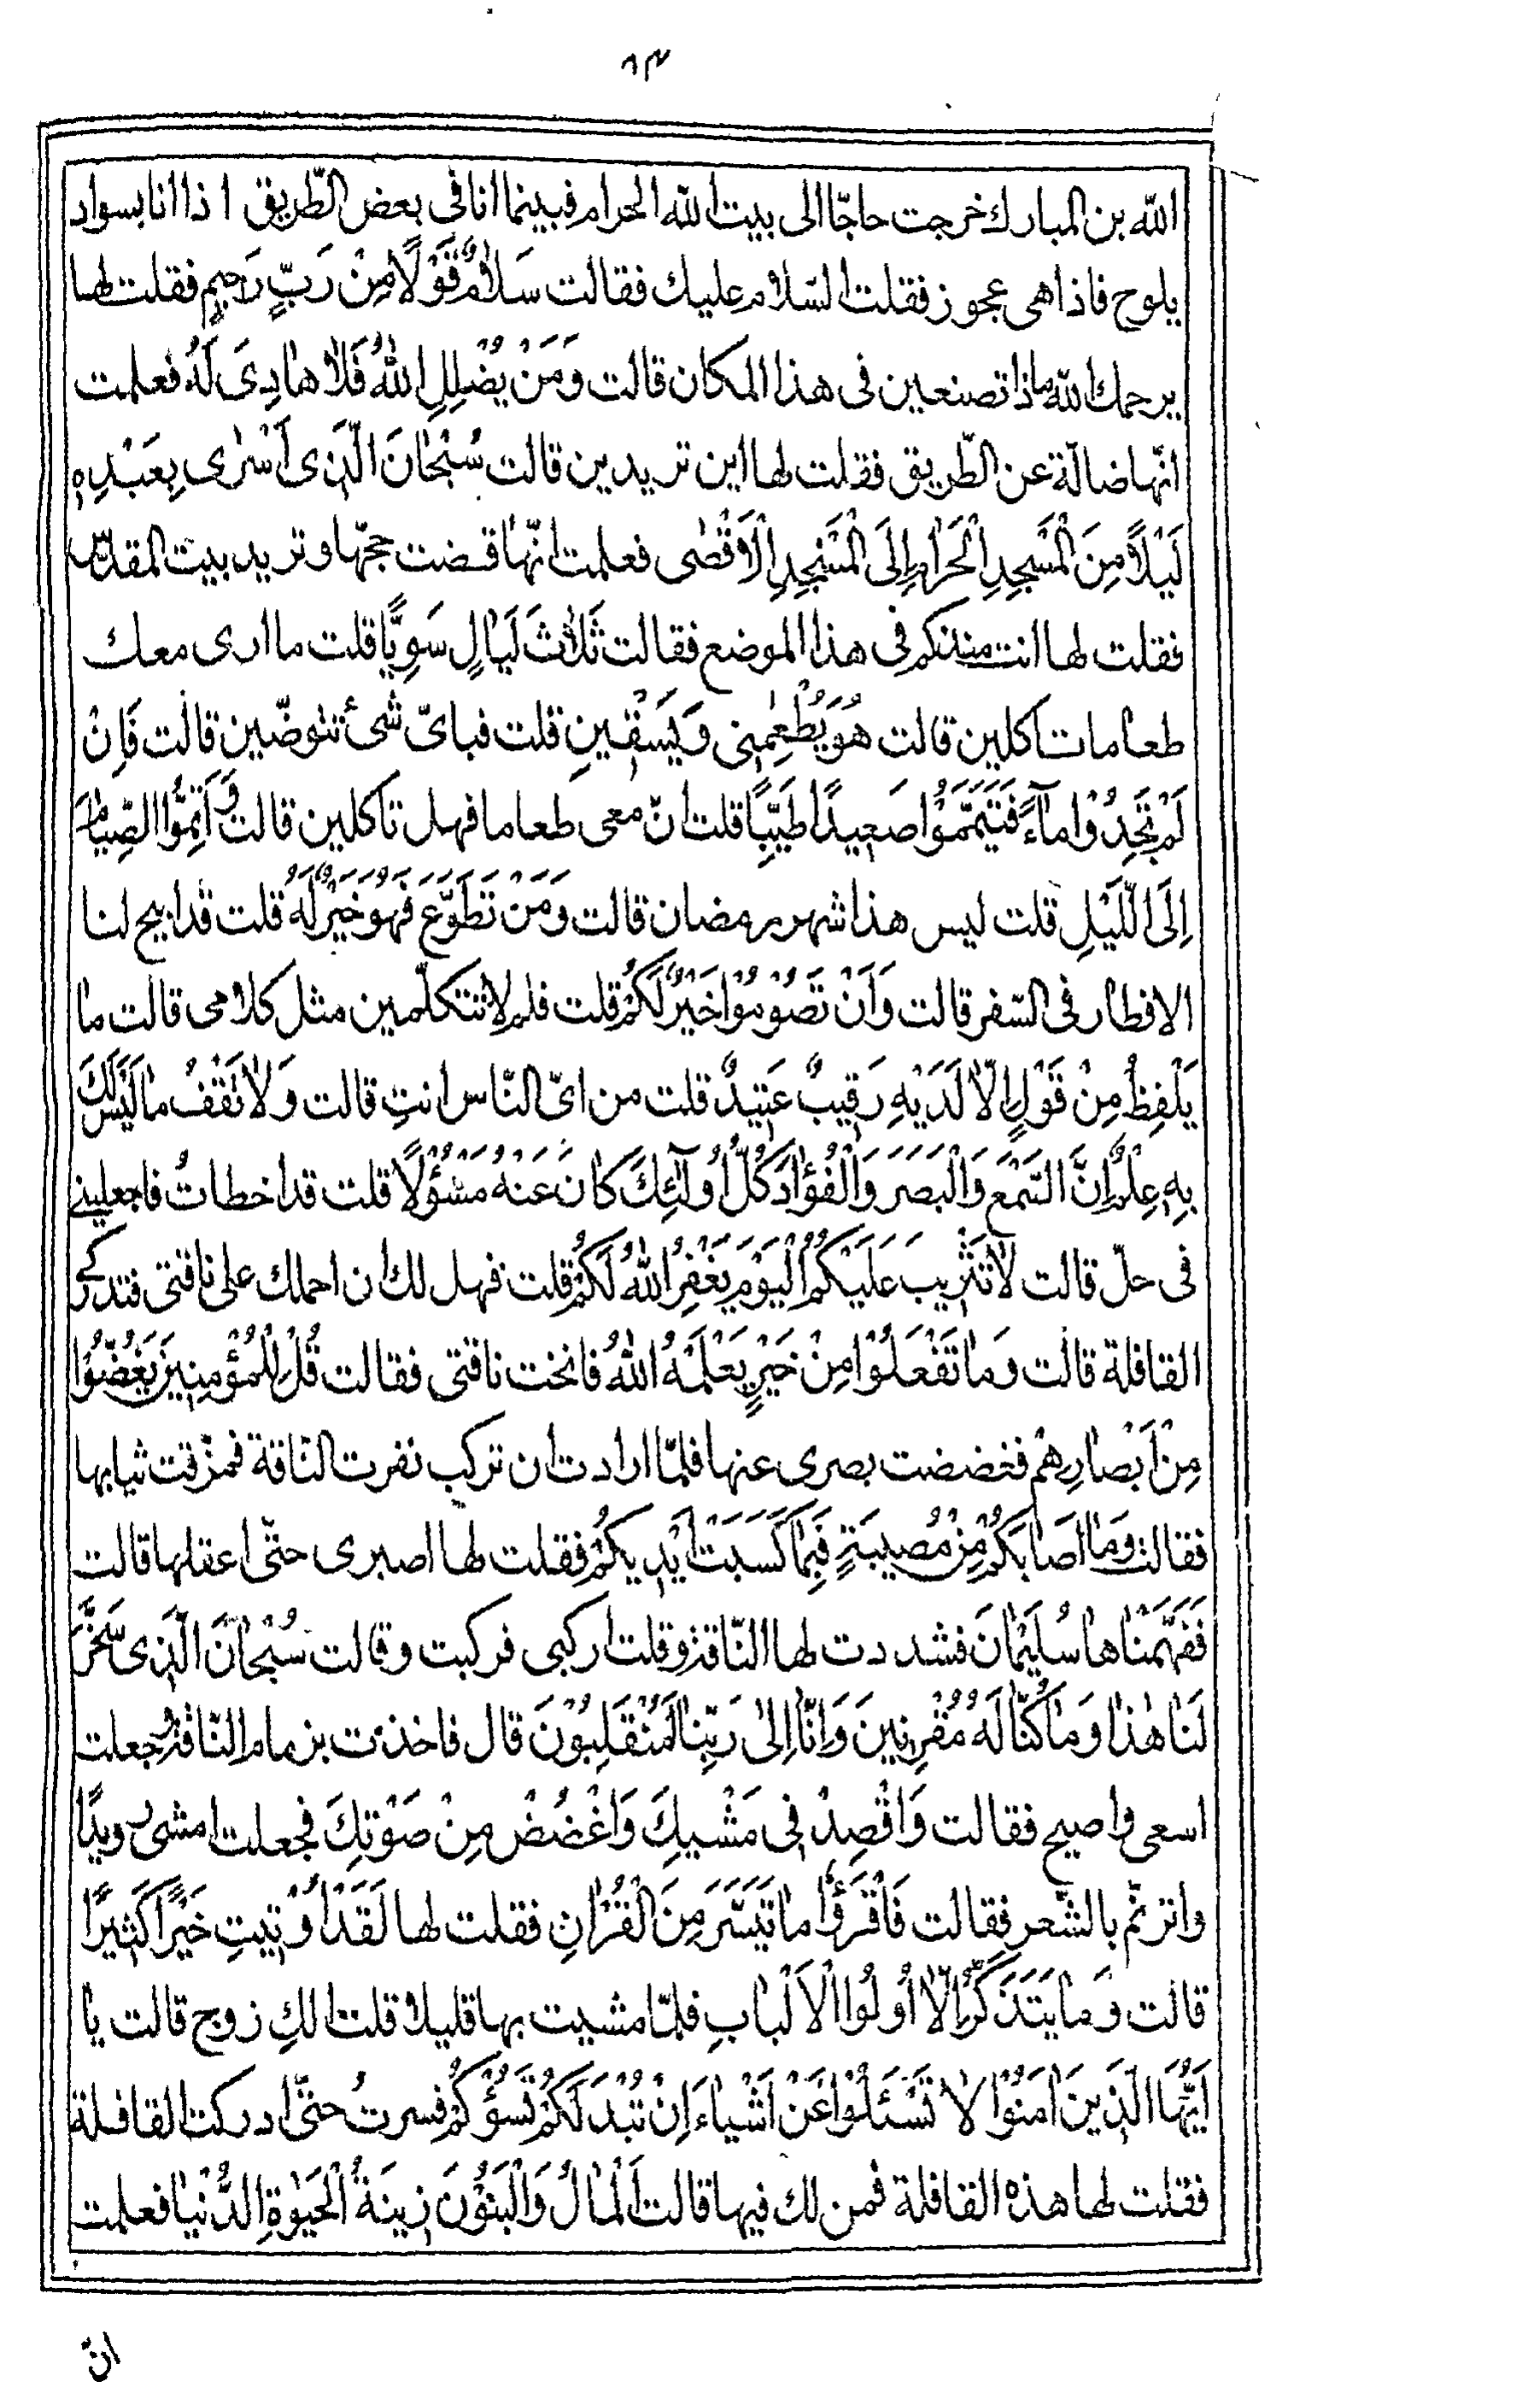 ٨٣
الله بن المبارك خرجت حاجّا الى بيت الله الحرام فبينما انا فى بعض الطّريق اذا انا بسواد
يلوح فاذا هى عجوز فقلت السّلام عليك فقالت سَلامٌ قَوْلًا مِنْ رَبٍّ رَحيمٍ فقلت لها
يرحمك الله ماذا تصنعين فى هذا المكان قالت وَمَنْ يُضْلِلِ اللهُ فَلا هادِىَ لَهُ فعلمت
انّها ضالّة عن الطّريق فقلت لها اين تريدين قالت سُبْحانَ الَّذى اَسْرى بِعَبْدِهِ
لَيْلًا مِنَ الْمَسْجِدِ الْحَرامِ اِلَى الْمَسْجِدِ الْاَقْصى فعلمت انّها قضت حجّها و تريد بيت المقدّس
فقلت لها انت منذكم فى هذا الموضع فقالت ثَلاثَ لَيالٍ سَوِيًّا قلت ما ارى معك
طعاما تاكلين قالت هُوَ يُطْعِمُنى وَ يَسْقينِ قلت فباىّ شىء تتوضّين قالت فَاِنْ
لَمْ تَجِدُوْا ماءً فَتَيَمَّمَوُا صَعيدًا طَيِّبًا قلت انّ معى طعاما فهل تاكلين قالت وَ اَتِمُّوا الصِّيامَ
اِلَى اللَّيْلِ قلت ليس هذا شهر رمضان قالت وَمَنْ تَطَوَّعَ فَهُوَ خَيْرٌ لَهُ قلت قد ابيح لنا
الافطار فى السّفر قالت وَاَنْ تَصُوْمُوْا خَيْرٌ لَكُمْ قلت فلم لا تتكلّمين مثل كلامى قالت ما
يَلْفِظُ مِنْ قَوْلٍ اِلّا لَدَيْهِ رَقيبٌ عَتيدٌ قلت من اىّ النّاس انتِ قالت وَلا تَقْفُ ما لَيْسَ لَكَ
بِهِ عِلْمٌ اِنَّ السَّمْعَ وَالْبَصَرَ وَالْفُؤادَ كُلُّ اُولئِكَ كانَ عَنْهُ مَسْؤُلًا قلت قد اخطاتُ فاجعلينى
فى حلّ قالت لا تَثْريبَ عَلَيْكُمُ الْيَوْمَ يَغْفِرُ اللهُ لَكُمْ قلت فهل لك ان احملك على ناقتى فتدركى
القافلة قالت وَما تَفْعَلُوْا مِنْ خَيْرٍ يَعْلَمْهُ اللهُ فانخت ناقتى فقالت قُلْ لِلْمُؤْمِنينَ يَغُضُّوُا
مِنْ اَبْصارِهِمْ فغضضت بصرى عنها فلمّا ارادت ان تركب نفرت النّاقة فمزّقت ثيابها
فقالت وَما اَصابَكُمْ مِنْ مُصيبَةٍ فَبِما كَسَبَتْ اَيْديكُمْ فقلت لها اصبرى حتّى اعقلها قالت
فَفَهَّمْناها سُلَيْمانَ فشددت لها النّاقة و قلت اركبى فركبت و قالت سُبْحانَ الَّذى سَخَّرَ
لَنا هذا وَما كُنّا لَهُ مُقْرِنينَ وَاِنّا اِلى رَبِّنا لَمُنْقَلِبُوْنَ قال فاخذت بزمام النّاقة و جعلت
اسعى و اصيح فقالت وَاقْصِدْ فى مَشْيِكَ وَاغْضُضْ مِنْ صَوْتِكَ فجعلت امشى رويدًا
و اترنّم بالشّعر فقالت فَاقْرَؤُا ما تَيَسَّرَ مِنَ الْقُرْانِ فقلت لها لَقَدْ اُوْتيتِ خَيْرًا كَثيرًا
قالت وَما يَتَذَكَّرُ اِلّا اُولُوا الْاَلْبابِ فلمّا مشيت بها قليلا قلت الكِ زوج قالت يا
اَيُّهَا الَّذينَ امَنُوْا لا تَسْئَلُوْا عَنْ اَشْياءَ اِنْ تُبْدَ لَكُمْ تَسُؤْكُمْ فسرتُ حتّى ادركت القافلة
فقلت لها هذه القافلة فمن لك فيها قالت اَلْمالُ وَالْبَنُوْنَ زينَةُ الْحَيوةِ الدُّنْيا فعلمت
انّ